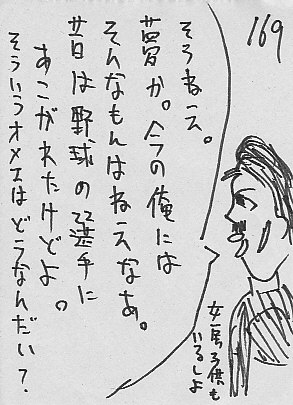 169
そうねえ。
夢か。今の俺には
そんなもんはねえなあ。
昔は野球の選手に
あこがれたけどよ。
そういうオメエはどうなんだい？
女房子供も
いるしよ